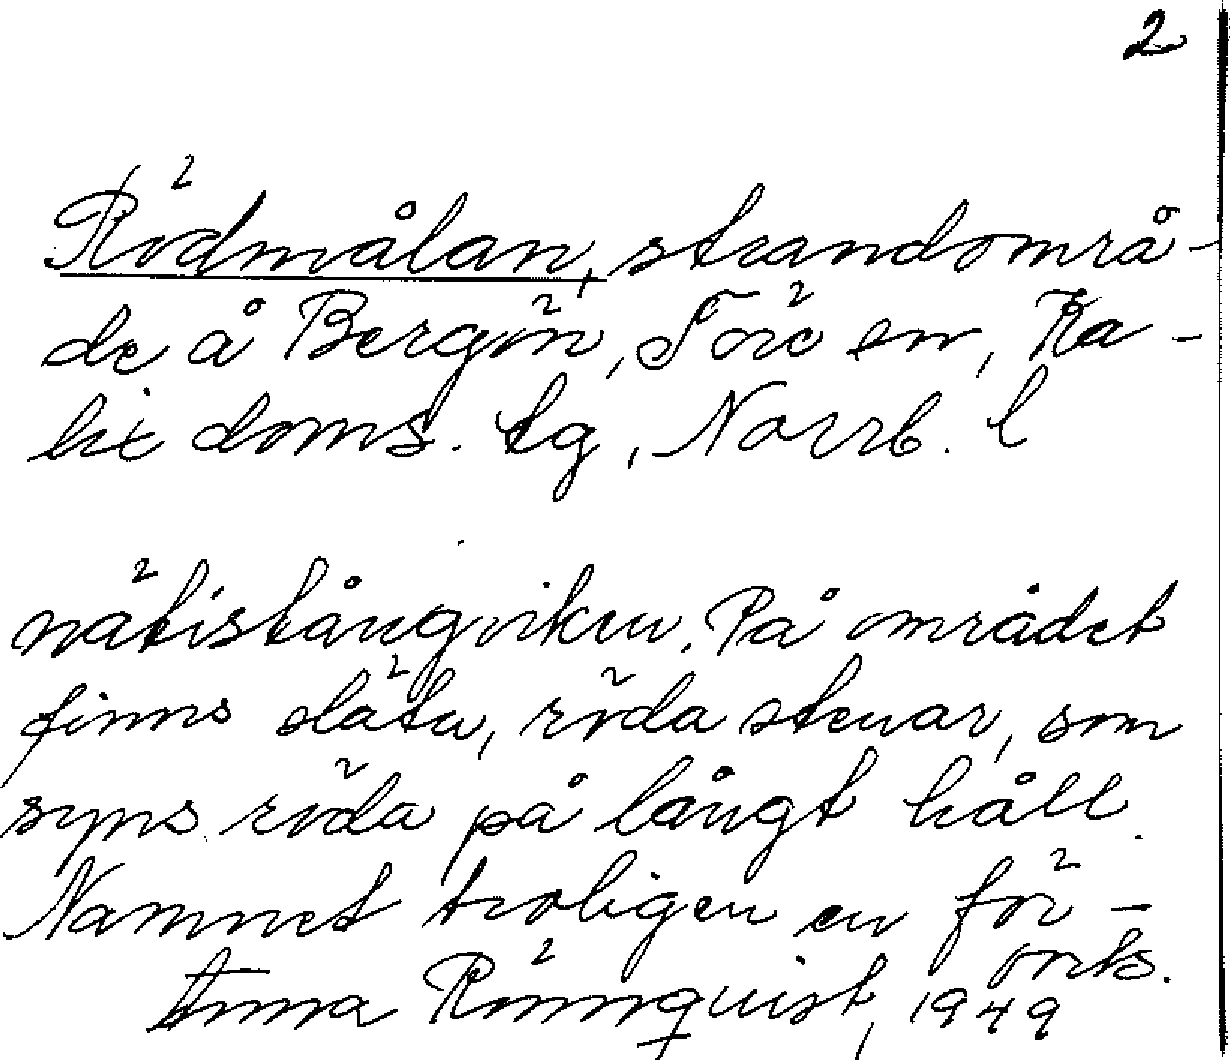 2
Rödmålan, strandområ-
de å Bergön, Töre sn, Ka-
lix doms. tg, Norrb. l
nätistångviken. På området
finns släta, röda stenar, som
syns röda på långt håll.
Namnet troligen en för-
Anna Rönnquist, 1949